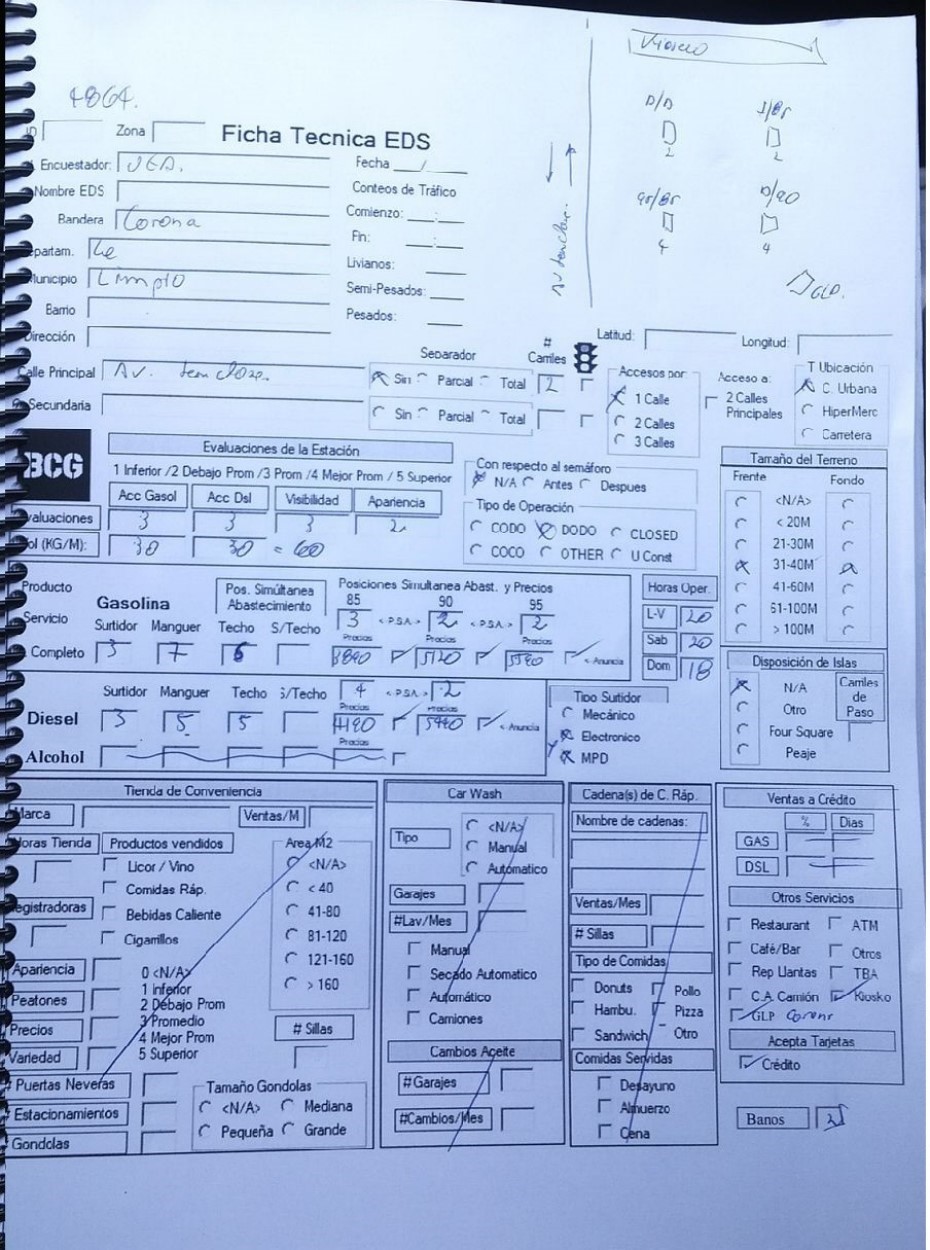 Viveco
4864.
D/D
J/Br
2
2
ID
Zona
Ficha Tecnica EDS
Encuestador: VED.
Fecha
Nombre EDS
Conteos de Tráfico
Bandera Corona
Comienzo:
Fin:
Departam.
Livianos:
Municipio Limpio
Semi-Pesados:
Barrio
Pesados:
Dirección
90/Br
D/90
4
4
GLP.
Latitud:
Longitud:
Calle Principal Av.
Separador
# Carriles
Sin Parcial Total 2
Secundaria
Sin Parcial Total
Accesos por:
1 Calle
2 Calles
3 Calles
Acceso a:
2 Calles
Principales
T Ubicación
C. Urbana
HiperMerc
Carretera
BCG
Evaluaciones de la Estación
1 Inferior /2 Debajo Prom /3 Prom /4 Mejor Prom / 5 Superior
Acc Gasol Acc Dsl Visibilidad Apariencia
Evaluaciones 3 3 3 2
Vol (KG/M): 30 30 = 60
Con respecto al semáforo
N/A Antes Despues
Tipo de Operación
CODO DODO CLOSED
COCO OTHER U Const
Tamaño del Terreno
Frente Fondo
<N/A>
< 20M
21-30M
31-40M
41-60M
61-100M
> 100M
Producto
Servicio
Completo
Gasolina
Pos. Simúltanea
Abastecimiento
Posiciones Simultanea Abast. y Precios
85 90 95
3 < P.S.A. > 2 < P.S.A. > 2
Surtidor Manguer Techo S/Techo
Precios Precios Precios
3 7 6 3890 5120 5590 < Anuncia
Horas Oper.
L-V 20
Sab 20
Dom 18
Diesel
Surtidor Manguer Techo S/Techo
4 < P.S.A. > 2
Precios Precios
3 5 5 4190 5940 < Anuncia
Alcohol
Precios
Tipo Surtidor
Mecánico
Electronico
MPD
Disposición de Islas
N/A
Otro
Four Square
Peaje
Carriles
de
Paso
Tienda de Conveniencia
Marca
Ventas/M
Horas Tienda
Productos vendidos
Licor / Vino
Comidas Ráp.
Bebidas Caliente
Cigarrillos
Registradoras
Area M2
<N/A>
< 40
41-80
81-120
121-160
> 160
Apariencia
Peatones
Precios
Variedad
0 <N/A>
1 Inferior
2 Debajo Prom
3 Promedio
4 Mejor Prom
5 Superior
# Sillas
# Puertas Neveras
# Estacionamientos
Gondolas
Tamaño Gondolas
<N/A> Mediana
Pequeña Grande
Car Wash
Tipo
<N/A>
Manual
Automatico
Garajes
#Lav/Mes
Manual
Secado Automatico
Automático
Camiones
Cambios Aceite
#Garajes
#Cambios/Mes
Cadena(s) de C. Ráp.
Nombre de cadenas:
Ventas/Mes
# Sillas
Tipo de Comidas
Donuts Pollo
Hambu. Pizza
Sandwich Otro
Comidas Servidas
Desayuno
Almuerzo
Cena
Ventas a Crédito
% Dias
GAS
DSL
Otros Servicios
Restaurant ATM
Café/Bar Otros
Rep Llantas TBA
C.A. Camión Kiosko
GLP Corona
Acepta Tarjetas
Crédito
Banos